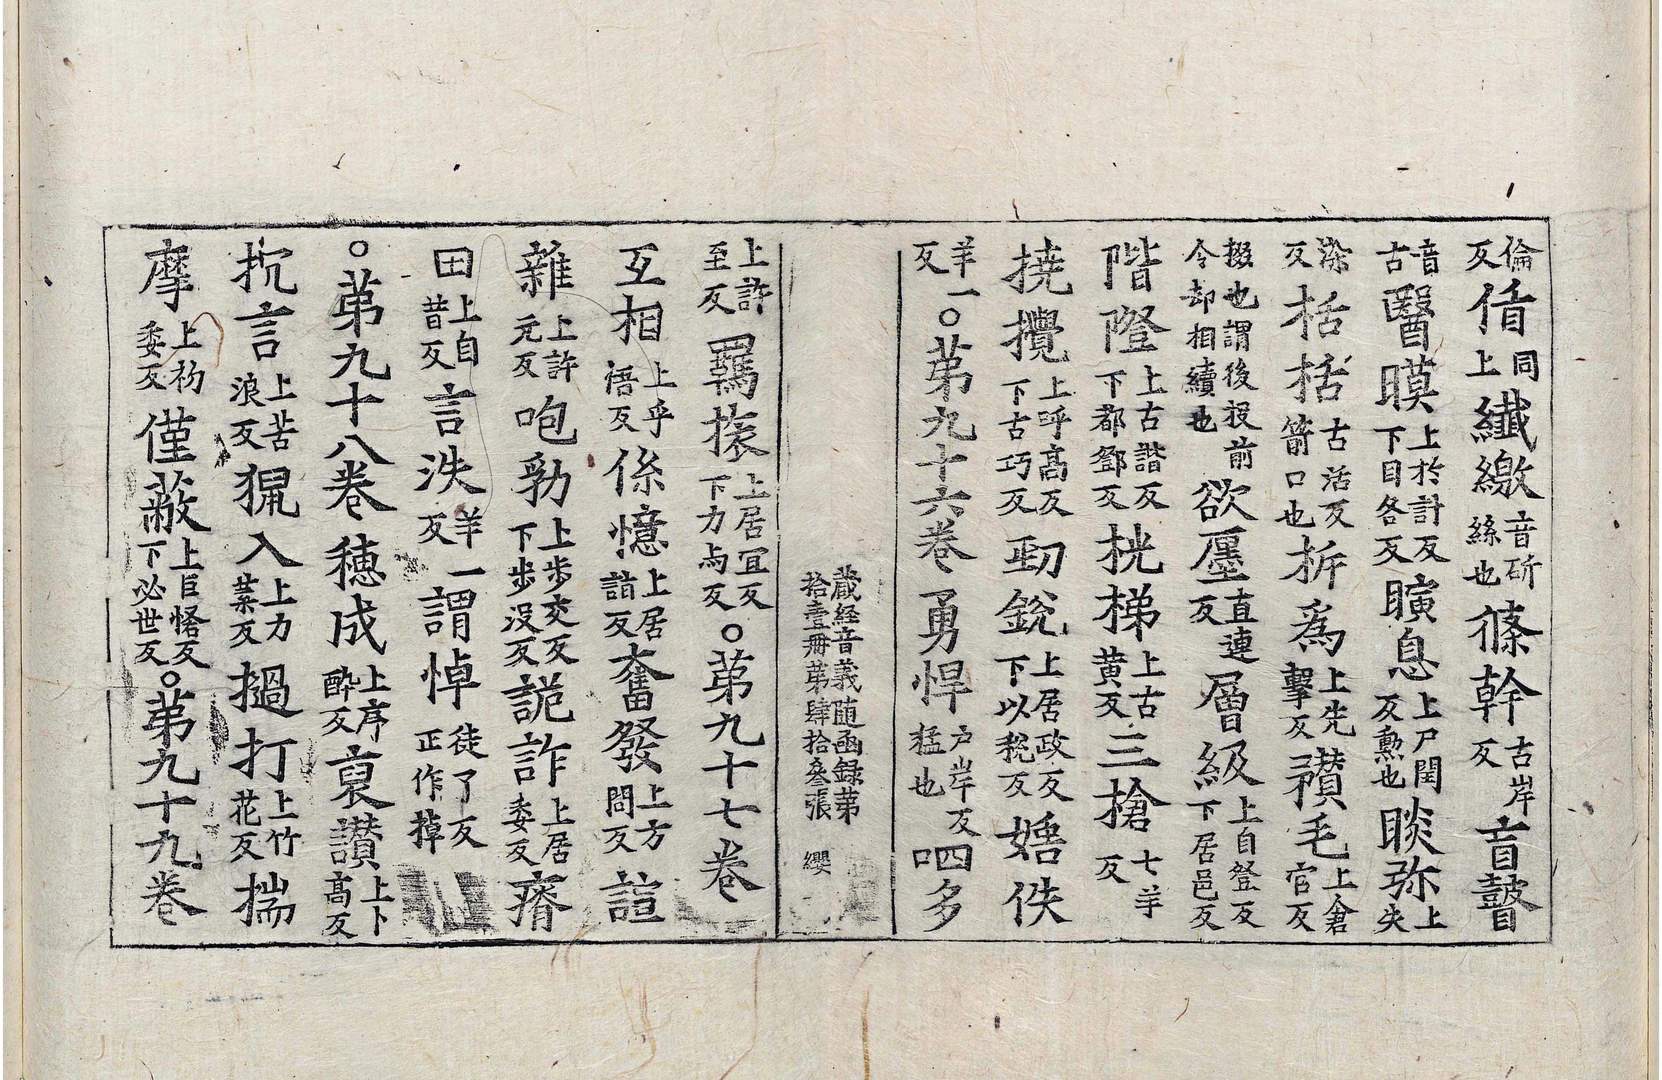 倫反偱同上纖繳音斫絲也篠幹古岸反盲瞽
音古醫瞙上於計反下目各反瞚息上尸閏反動也睒弥上失
染反栝栝古活反箭口也析為上先擊反穳毛上倉官反
掇也謂後投前令却相續也欲㕓直連反層級上自登反下居邑反
階隥上古諧反下都鄧反桄梯上古黄反三槍七羊反
撓攪上呼高反下古巧反勁銳上居政反下以稅反㛐佚
羊一反○第九十六卷勇悍戶岸反猛也呬多
藏經音義随函録第拾壹冊第肆拾叅張 纓
上許至反羈㨾上居宜反下力為反○第九十七卷
互相上乎悟反係憶上居詣反奮發上方問反諠
雜上許元反咆勃上步交反下步没反詭詐上居委反瘠
田上自昔反言泆羊一反謂悼徒了反正作掉
○第九十八卷穗成上序醉反裒讚上卜高反
抗言上苦浪反猟入上力葉反撾打上竹花反揣
摩上初委反僅蔽上巨恡反下必世反○第九十九卷